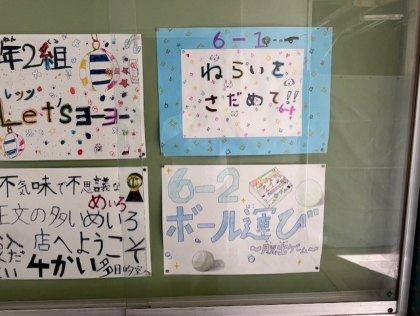 年2組
レッツ
Let'sヨーヨー
6-1
ねらいを
さだめて!!
6-1
不気味で不思議な
めいろ
注文の多いめいろ
店へようこそ
4かい
6-2
ボール運び
〜脱出ゲーム〜